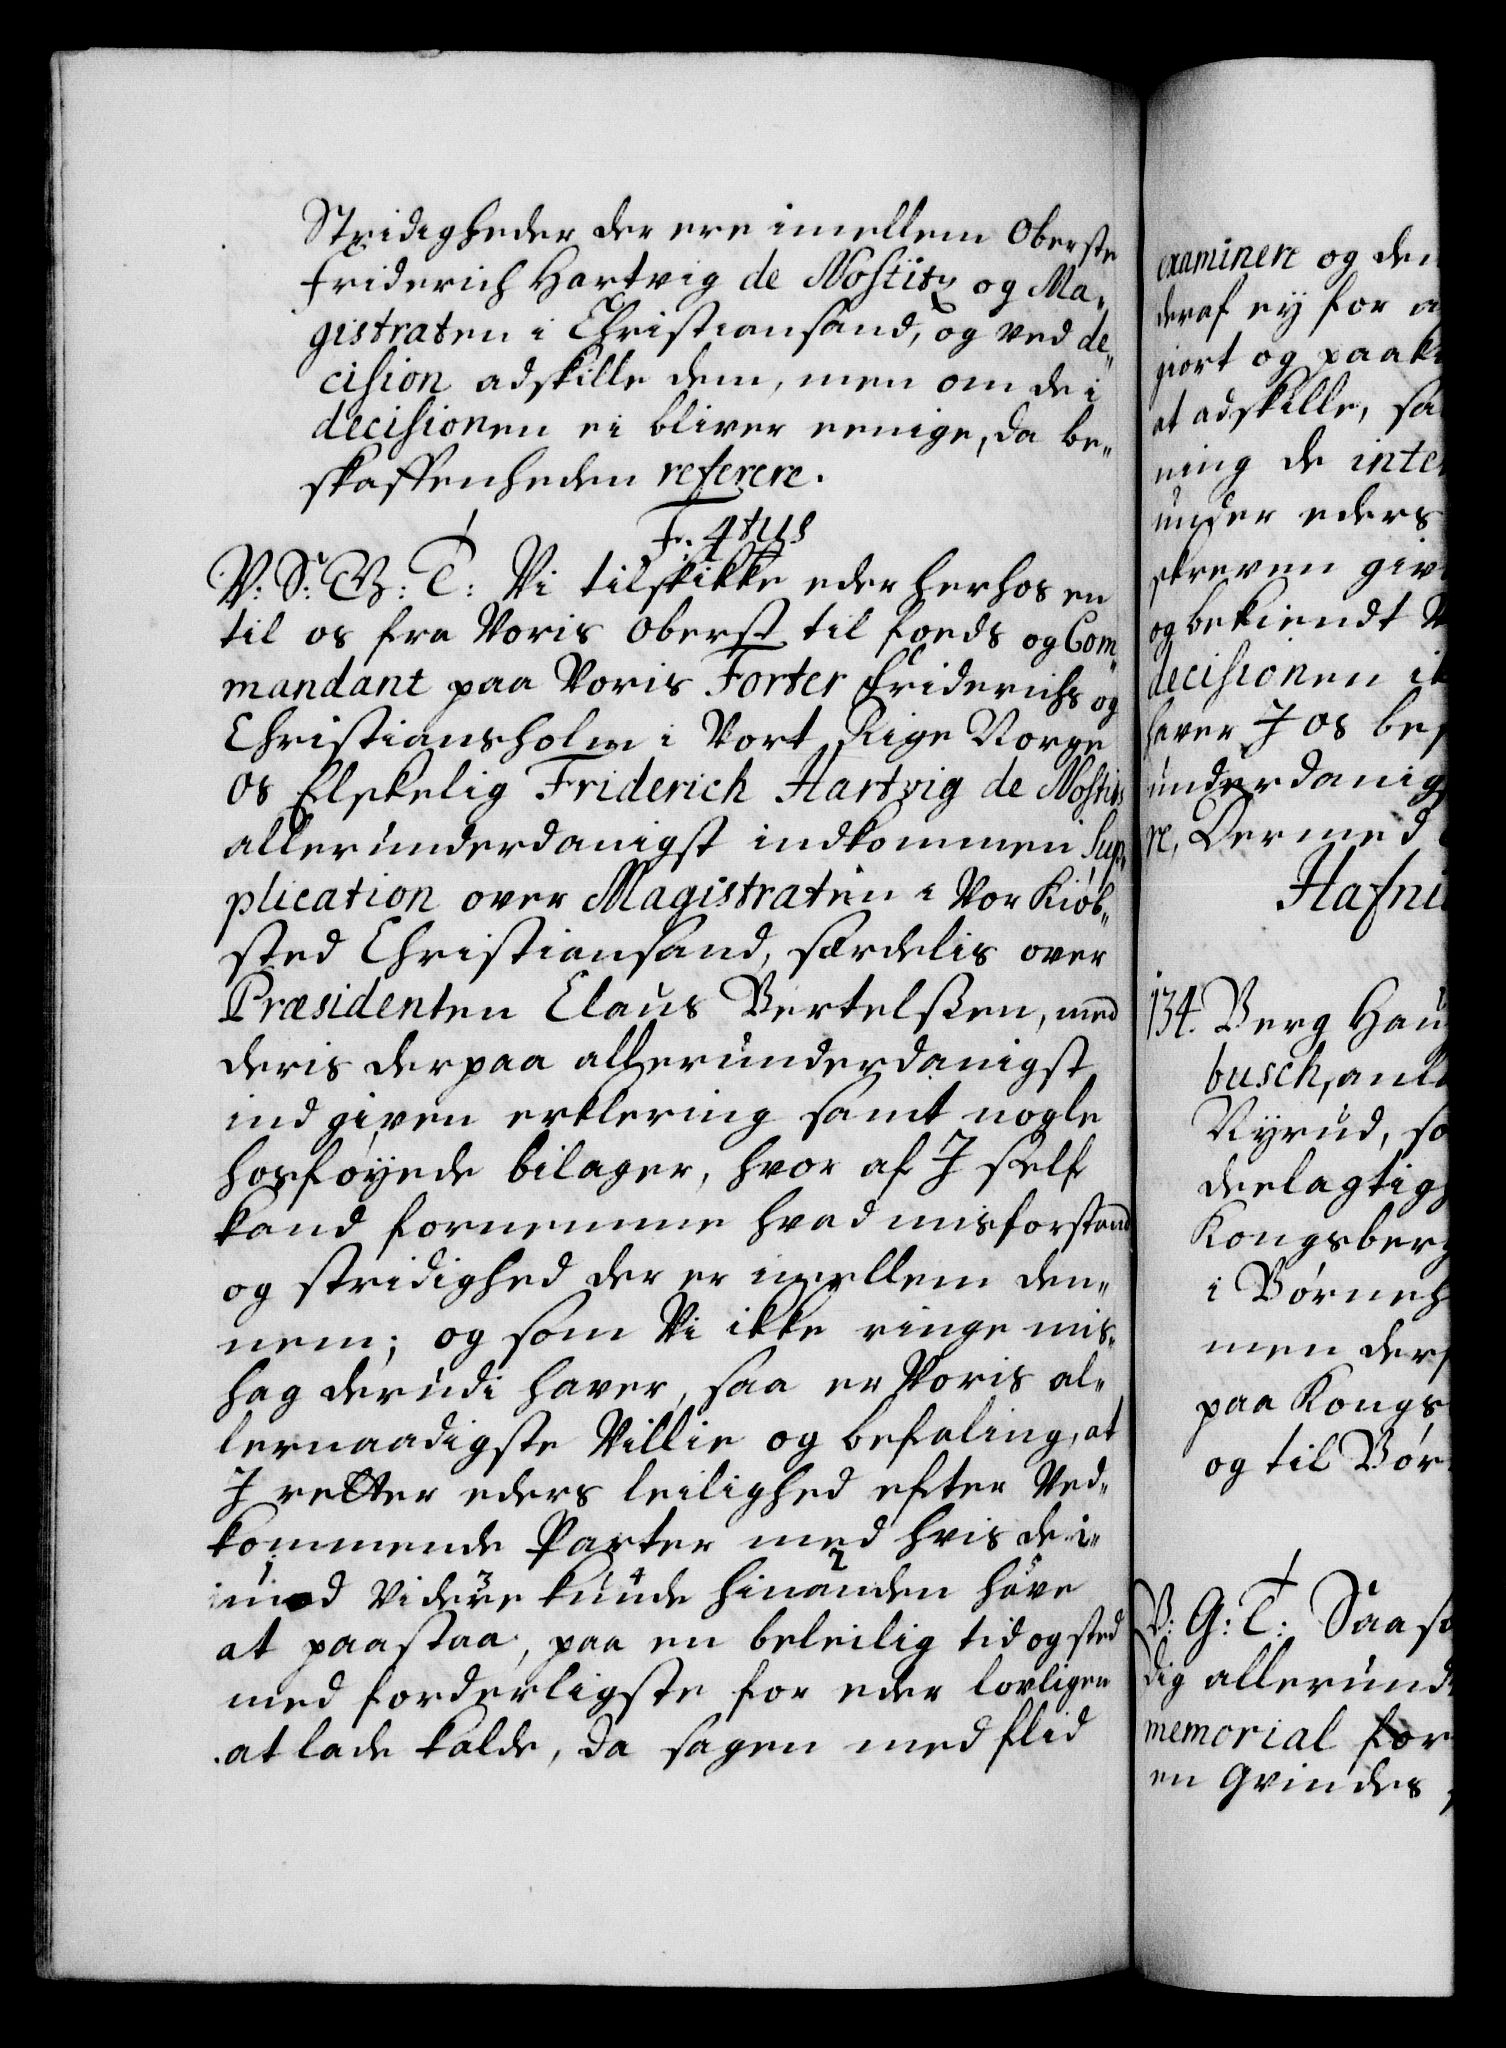 Stridigheder der ere imellem Oberste
Friderich Hartvig de Nostitz og Ma„
gistraten i Christiansand, og ved de„
cision adskille dem, men om de i
decisionen ei bliver eenige, da be„
skaffenheden referere.
F. 4tus
V: S: G: T: Vi tilskikke eder herhos en
til os fra Voris Oberst til foeds og Com„
mandant paa Voris Forter Friderichs og
Christiansholm i Vort Rige Norge
os Elskelig Friderich Hartvig de Nostits
allerunderdanigst indkommen Sup„
plication over Magistraten i Vor Kiøb„
sted Christiansand, særdelis over
Præsidenten Claus Bertelßen, med
deris derpaa allerunderdanigst
indgiven erklering samt nogle
hosføyede bilager, hvor af J self
kand fornemme hvad misforstand
og stridighed der er imellem den„
nem; og som Vi ikke ringe mis„
hag derudi haver, saa er Voris al„
lernaadigste Villie og befaling, at
J retter eders leilighed efter Ved„
kommende Parter med hvis de i„
1 2 3 4 5
imod Videre kunde hinanden have
at paastaa, paa en beleilig tid og sted
med forderligste for eder lovligen
at lade kalde, da sagen med flid
examinere og den
deraf ey for a
giort og paak
at adskille, sa
ning de inte
under eders
skreven giv
og bekiendt
decisionen ik
haver J os be
underdanig
re, Dermed
Hafni
134. Berg Hau
busch, anl
Nyrud, so
deelagtig
Kongsberg
i Børneh
men der
paa Kongs
og til Bør
V: G: T: Saaso
dig allerund
memorial for
en Qvindes